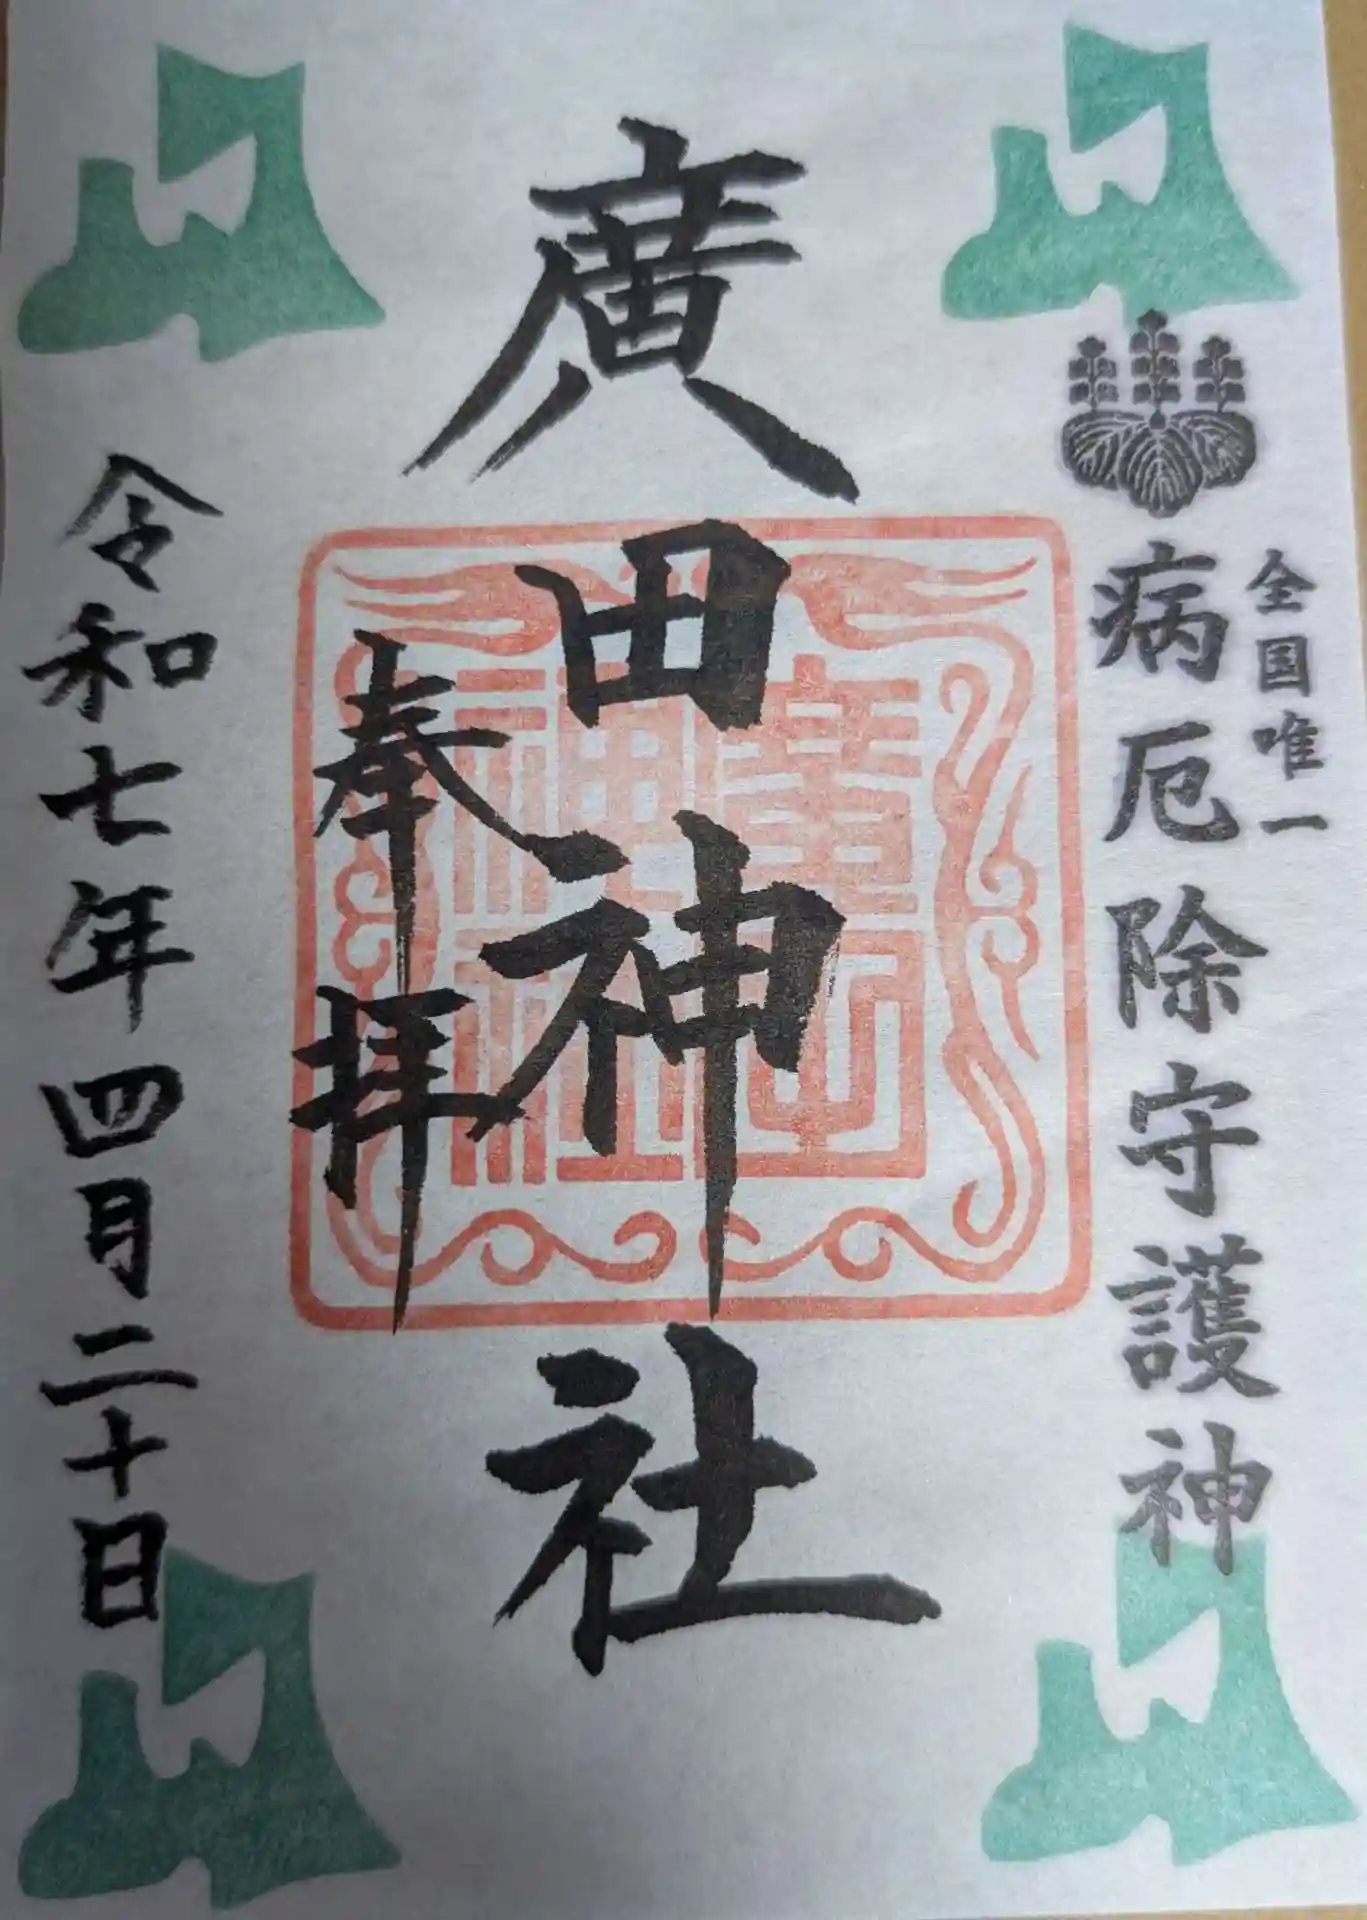 全国唯一
病厄除守護神
廣田神社
奉拝
令和七年四月二十日
廣田
神社